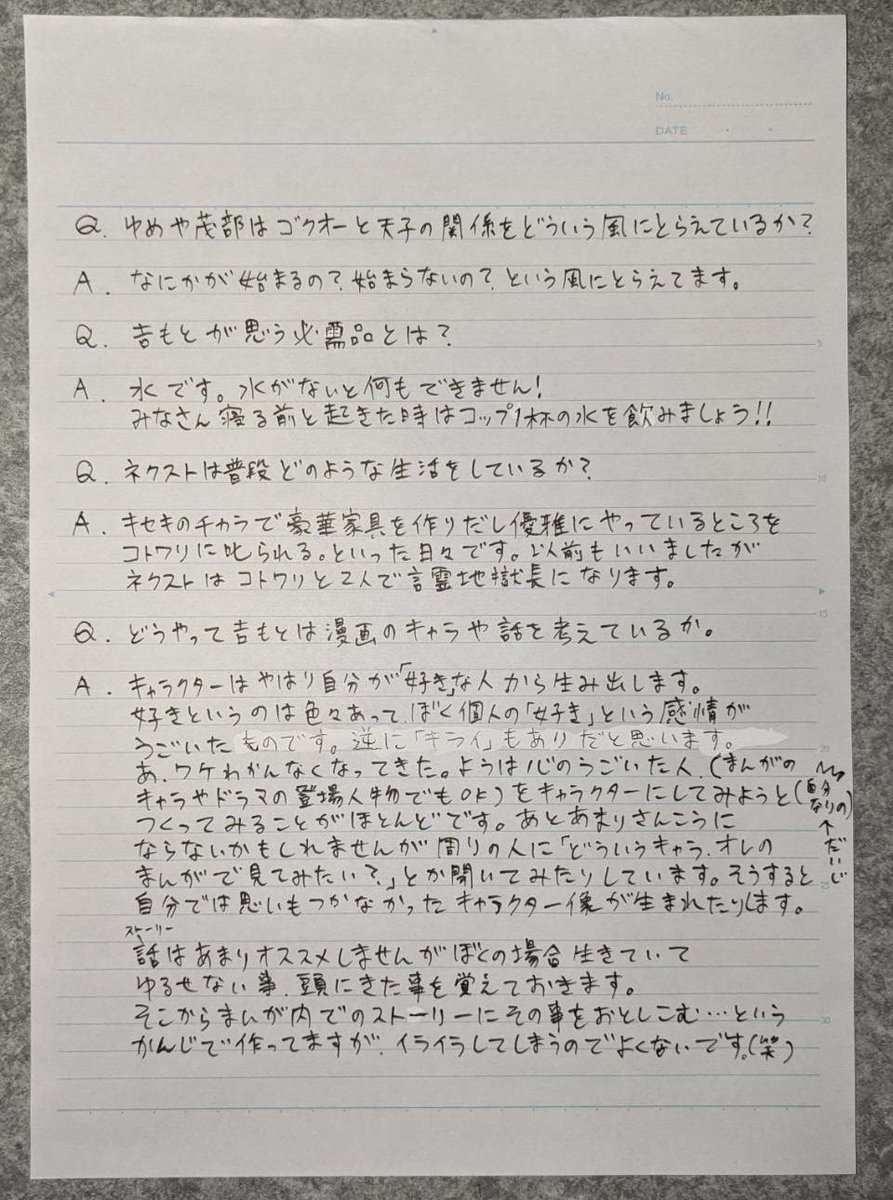 No.
DATE
Q. ゆめや茂部はゴクオーと天子の関係をどういう風にとらえているか?
A. なにかが始まるの?始まらないの?という風にとらえてます。
Q. 吉もとが思う必需品とは?
5
A. 水です。水がないと何もできません!
みなさん寝る前と起きた時はコップ1杯の水を飲みましょう!!
Q. ネクストは普段どのような生活をしているか?
10
A. キセキのチカラで豪華家具を作りだし優雅にやっているところを
コトワリに叱られる。といった日々です。以前もいいましたが
ネクストはコトワリと2人で言霊地獄長になります。
15
Q. どうやって吉もとは漫画のキャラや話を考えているか。
A. キャラクターはやはり自分が「好き」な人から生み出します。
好きというのは色々あって、ぼく個人の「好き」という感情が
うごいたものです。逆に「キライ」もありだと思います。
20
あ、ワケわかんなくなってきた。ようは心のうごいた人、(まんがの
キャラやドラマの登場人物でもOK)をキャラクターにしてみようと(自分なりの)
↑だいじ
つくってみることがほとんどです。あとあまりさんこうに
ならないかもしれませんが周りの人に「どういうキャラ、オレの
まんがで見てみたい?」とか聞いてみたりしています。そうすると
25
自分では思いもつかなかったキャラクター像が生まれたりします。
ストーリー
話はあまりオススメしませんがぼくの場合生きていて
ゆるせない事、頭にきた事を覚えておきます。
そこからまんが内でのストーリーにその事をおとしこむ…という
30
かんじで作ってますが、イライラしてしまうのでよくないです。(笑)